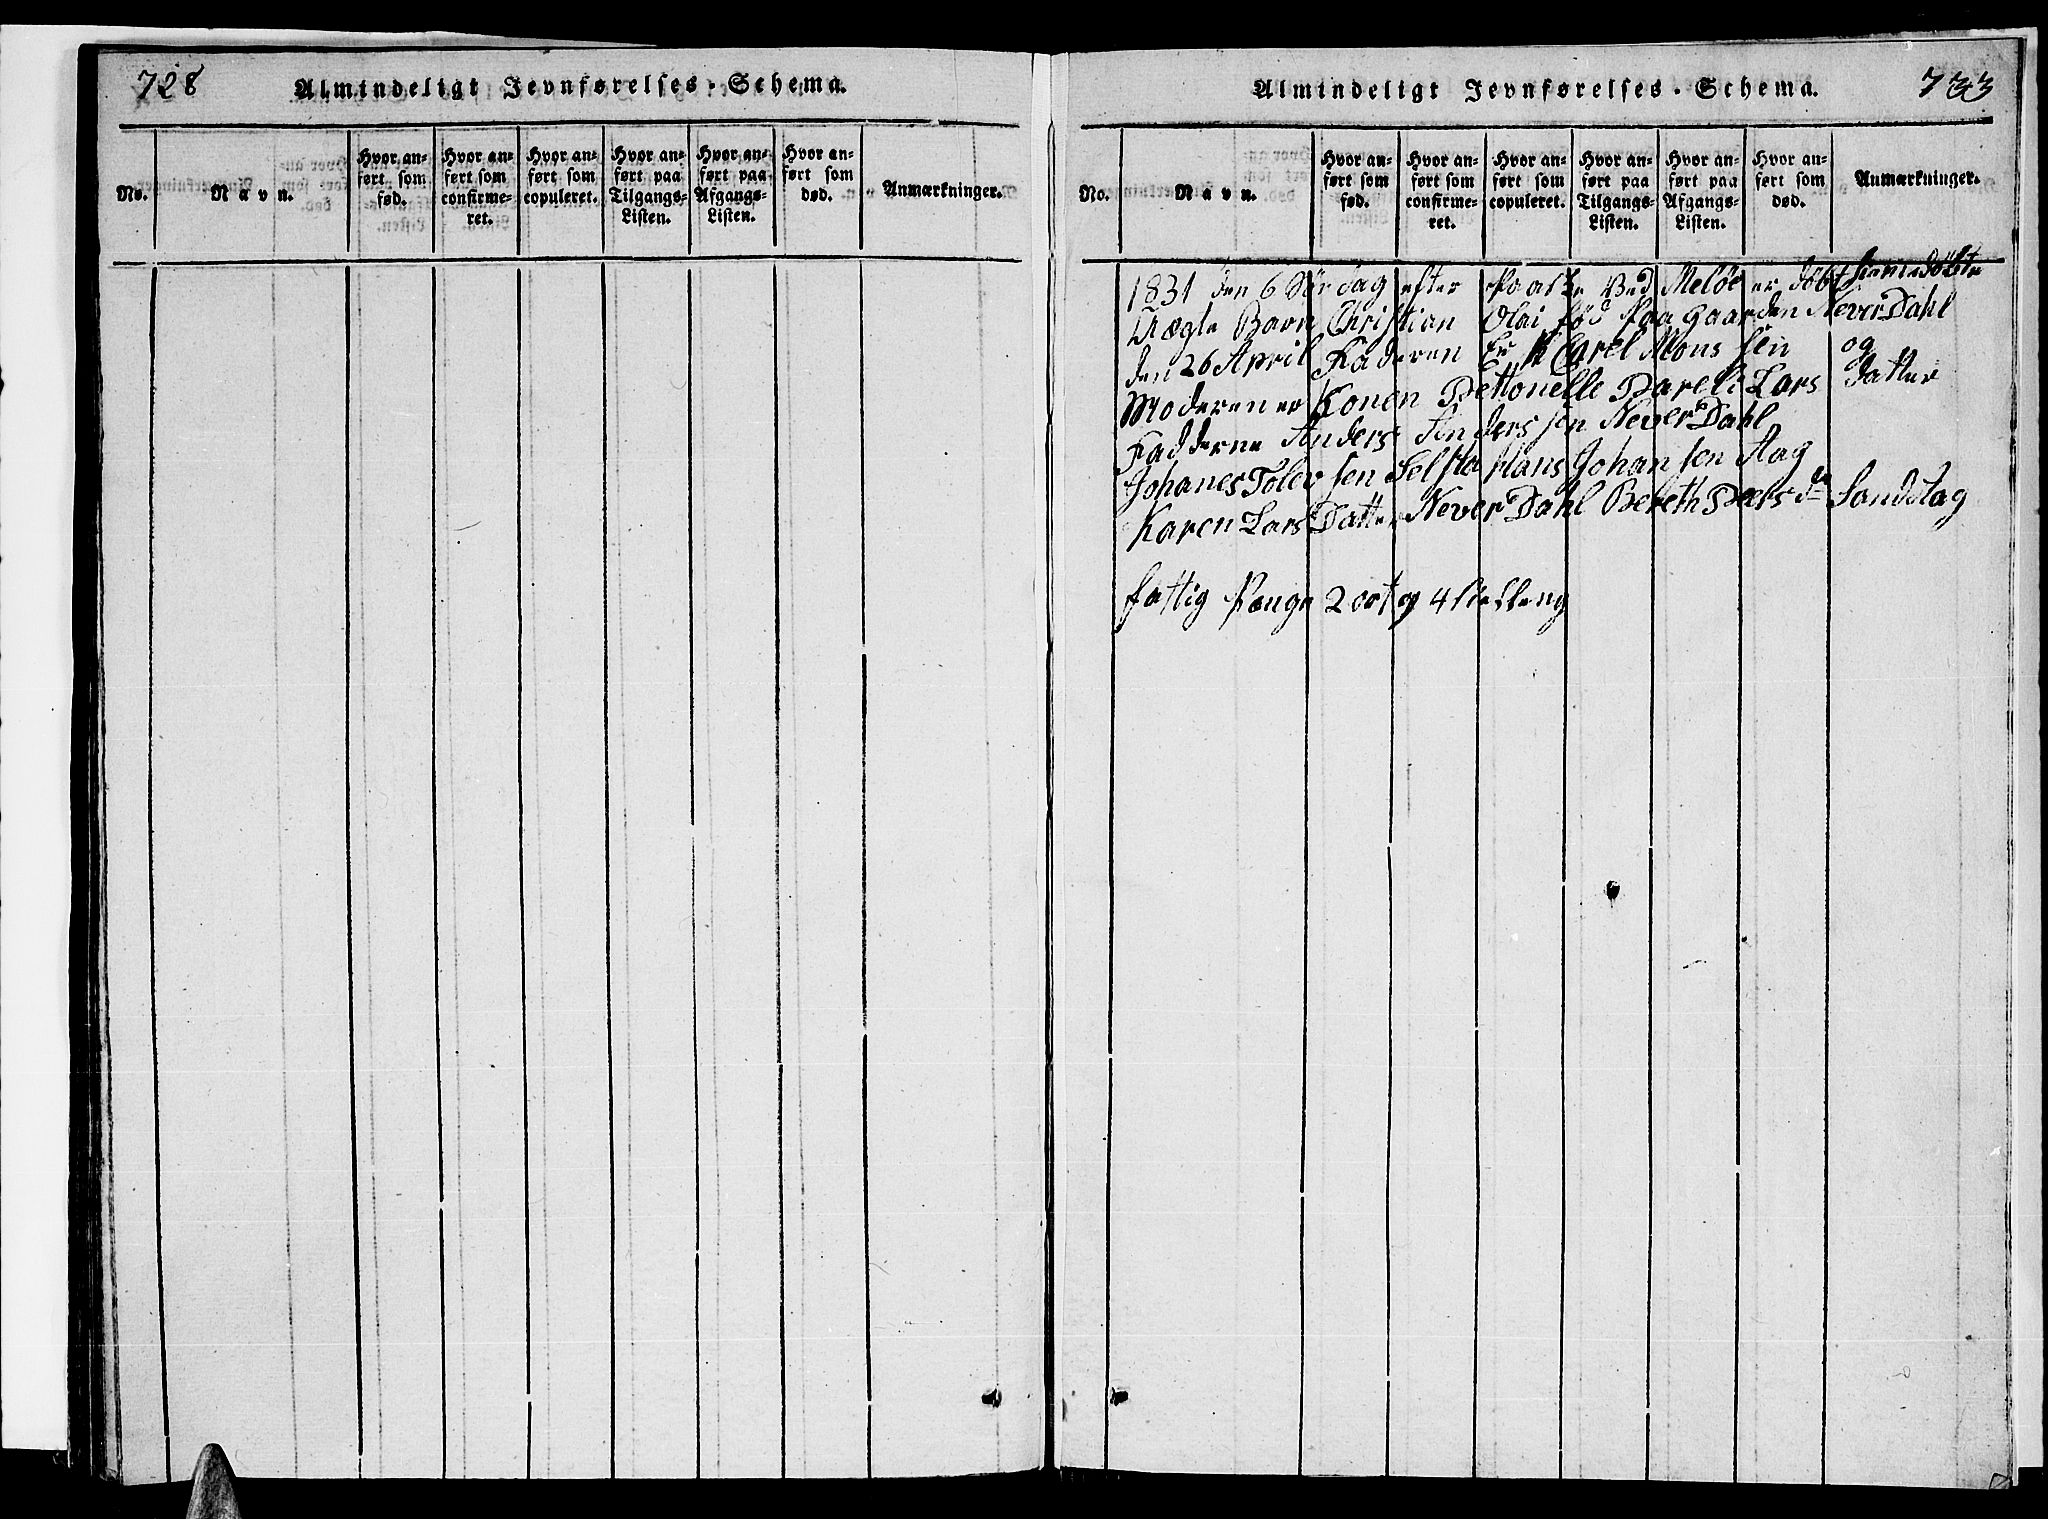 728
Almindeligt Jevnførelses-Schema.
No.
Navn.
Hvor an-
ført som
fød.
Hvor an-
ført som
confirme-
ret.
Hvor an-
ført som
copuleret.
Hvor an-
ført paa
Tilgangs-
Listen.
Hvor an-
ført paa
Afgangs-
Listen.
Hvor an-
ført som
død.
Anmærkninger.
Almindeligt Jevnførelses-Schema.
733
No.
Navn.
Hvor an-
ført som
fød.
Hvor an-
ført som
confirme-
ret.
Hvor an-
ført som
copuleret.
Hvor an-
ført paa
Tilgangs-
Listen.
Hvor an-
ført paa
Afgangs-
Listen.
Hvor an-
ført som
død.
Anmærkninger.
1831 den 6 Sørdag efter Paaske Ved Meløe er døbt hiemedøbte
Ægte Barn Christian Olai fød paa gaarden NeverDahl
den 26 April Faderen Er Karel Mons sen og
Moderen er Konen Pettonelle Dareli Lars datter
Fadderne Anders Anders sen NeverDahl
Johanes Tolev sen Selsta Hans Johan sen Aag
Karen Lars Datter NeverDahl Bereth Peers dr Sandstag
fattig Penge 2 ort og 4 skelleng